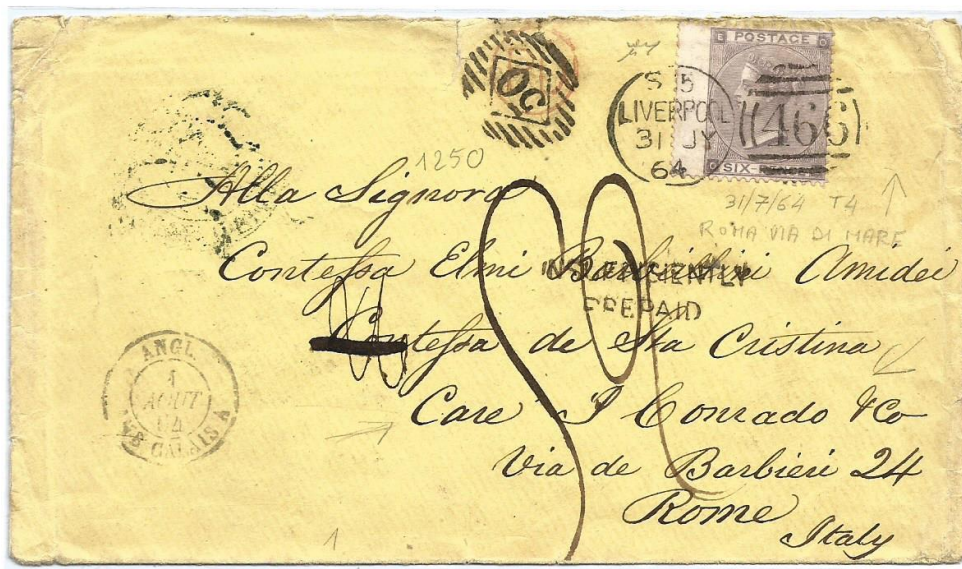 E POSTAGE O
S 5
LIVERPOOL
31 JY
64
466
SIX-PENCE
OC
1250
31/7/64 T4
ROMA VIA DI MARE
Alla Signora
Contessa Elmi Amidei
INSUFFICIENTLY
PREPAID
Contessa de Sta Cristina
Care I Conrado & Co
Via de Barbieri 24
Rome
Italy
ANGL.
1
AOUT
64
CALAIS A
1